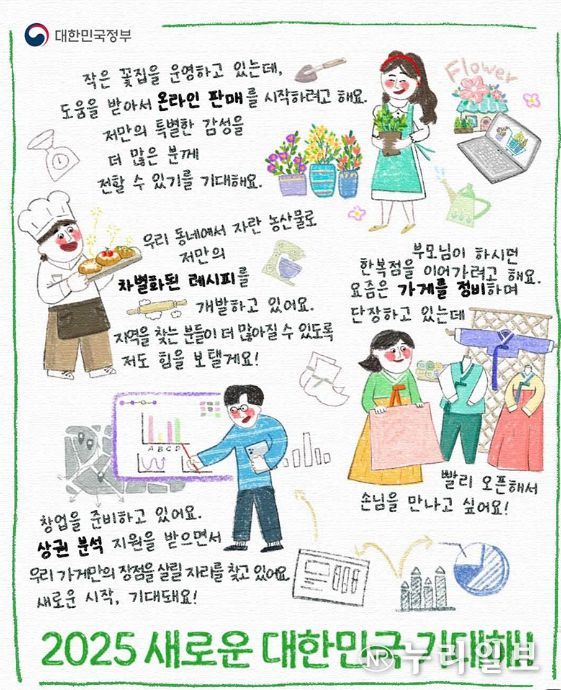 대한민국정부
작은 꽃집을 운영하고 있는데,
도움을 받아서 온라인 판매를 시작하려고 해요.
저만의 특별한 감성을
더 많은 분께
전할 수 있기를 기대해요.
Flower
우리 동네에서 자란 농산물로
저만의
차별화된 레시피를
개발하고 있어요.
지역을 찾는 분들이 더 많아질 수 있도록
저도 힘을 보탤게요!
부모님이 하시던
한복점을 이어가려고 해요.
요즘은 가게를 정비하며
단장하고 있는데
빨리 오픈해서
손님을 만나고 싶어요!
A B C D
창업을 준비하고 있어요.
상권 분석 지원을 받으면서
우리 가게만의 장점을 살릴 자리를 찾고 있어요
새로운 시작, 기대돼요!
2025 새로운 대한민국 기대해!
NR 누리일보